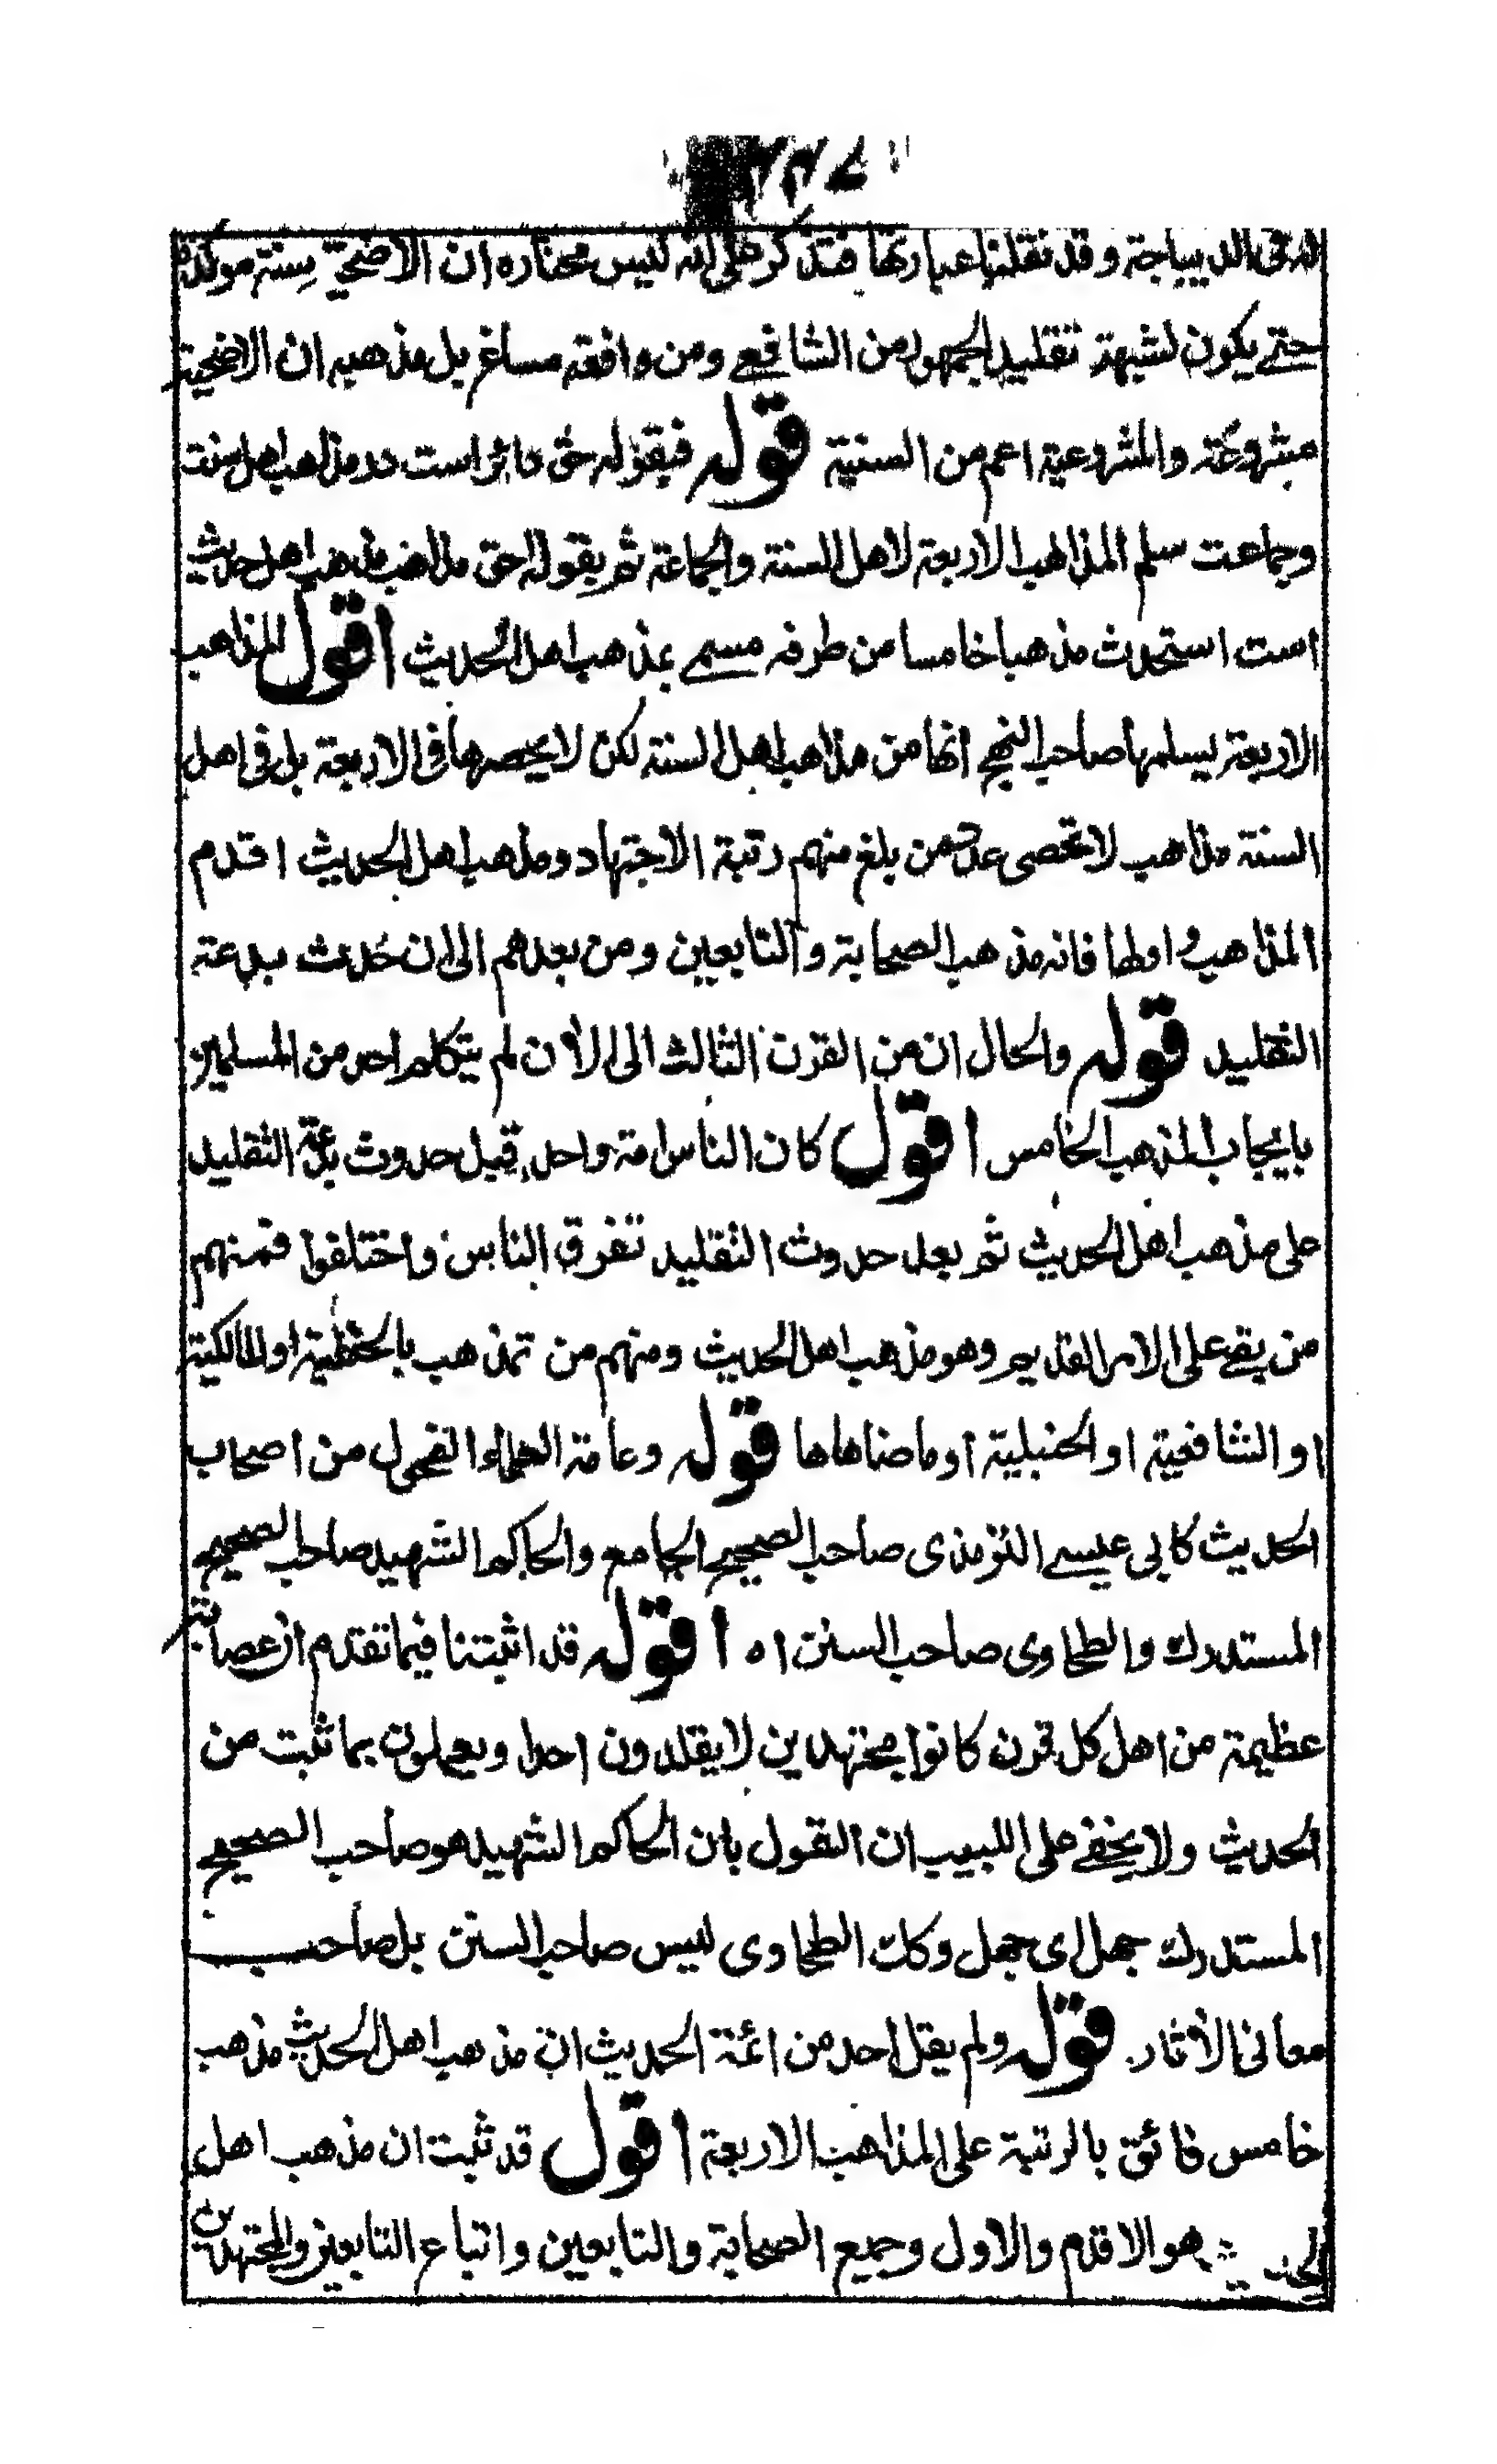 له فى الديباجة وقد نقلنا عبارتها فتذكر على انه ليس مختاره ان الاضحيّة سنة موكدة
حتے يكون لشبهة تقليد الجمهور من الشافعے ومن وافقه مساغ بل مذهبه ان الاضحية
مشروعة والمشروعية اعم من السنية قوله فبقوله حق دائر است در مذاهب اهل سنت
وجماعت سلم المذاهب الاربعة لاهل السنة والجماعة ثم بقوله حق مذهب اهل حديث
است استحدث مذهبا خامسا من طرفه مسمے بمذهب اهل الحديث اقول المذاهب
الاربعة يسلمها صاحب النهج انها من مذاهب اهل السنة لكن لا يحصرها فى الاربعة بل فى اهل
السنة مذاهب لا تحصى عدد من بلغ منهم رتبة الاجتهاد ومذهب اهل الحديث اقدم
المذاهب واولها فانه مذهب الصحابة والتابعين ومن بعدهم الى ان حدث بدعة
التقليد قوله والحال ان من القرن الثالث الى الأن لم يتكلم احد من المسلمين
بايجاب المذهب الخامس اقول كان الناس امة واحدة قبل حدوث بدعة التقليد
على مذهب اهل الحديث ثم بعد حدوث التقليد تفرق الناس واختلفوا فمنهم
من بقے على الامر القديم وهو مذهب اهل الحديث ومنهم من تمذهب بالحنفية او المالكية
او الشافعية او الحنبلية او ما ضاهاها قوله وعامة العلماء الفحول من اصحاب
الحديث كابى عيسے الترمذى صاحب الصحيح الجامع والحاكم الشهيد صاحب الصحيح
المستدرك والطحاوى صاحب السنن اه اقول قد اثبتنا فيما تقدم ان عصابة
عظيمة من اهل كل قرن كانوا مجتهدين لا يقلدون احدا ويعملون بما ثبت من
الحديث ولا يخفے على اللبيب ان القول بان الحاكم الشهيد هو صاحب الصحيح
المستدرك جهل اى جهل وكذا الطحاوى ليس صاحب السنن بل صاحب
معانى الأثار قوله ولم يقل احد من ائمة الحديث ان مذهب اهل الحديث مذهب
خامس فائق بالرتبة على المذاهب الاربعة اقول قد ثبت ان مذهب اهل
الحديث هو الاقدم والاول وجميع الصحابة والتابعين واتباع التابعين والمجتهدين